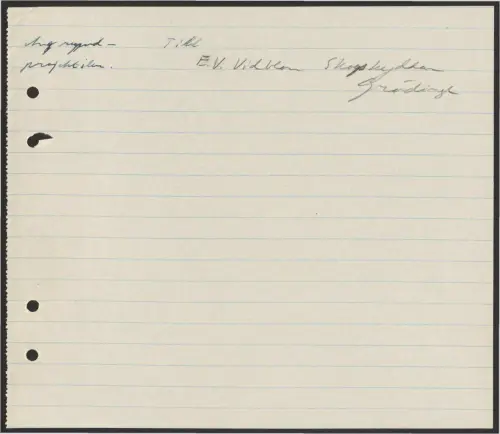 Ang rymd-
projektilen.
Till
E.V. Vidblom Skogshyddan
Grödinge